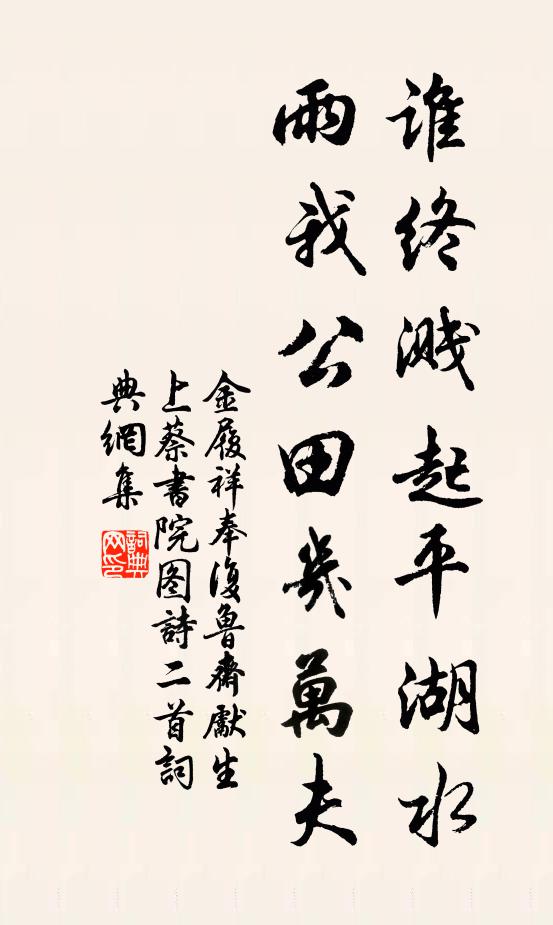 誰終濺起平湖水
雨我公田幾萬夫
金履祥奉復魯齋獻生
上蔡書院图詩二首詞
典網集
詞典网印